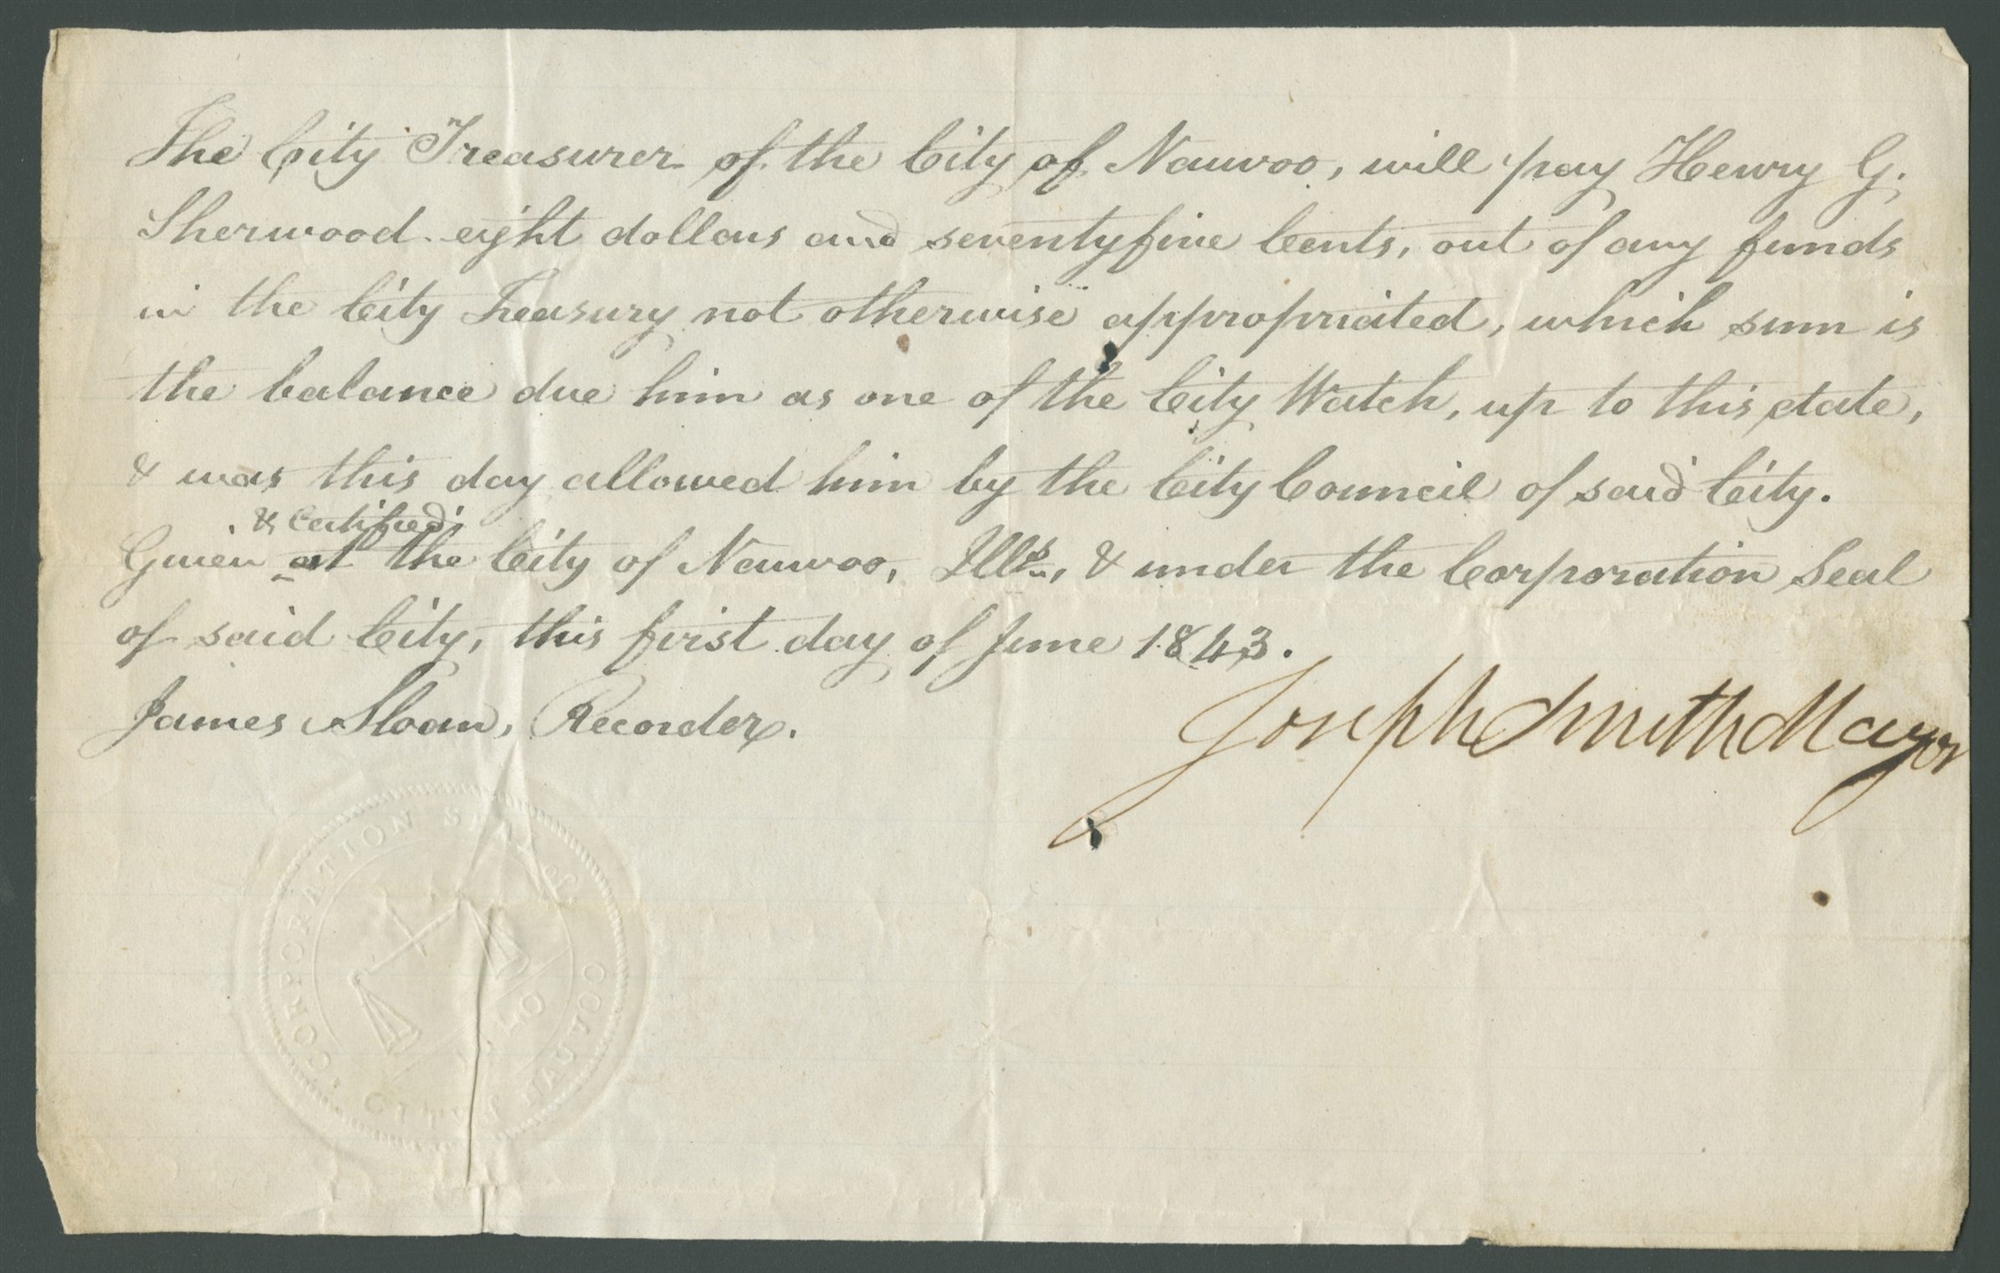 The City Treasurer of the City of Nauvoo, will pay Henry G.
Sherwood eight dollars and seventyfive Cents, out of any funds
in the City Treasury not otherwise appropriated, which sum is
the balance due him as one of the City Watch, up to this date,
& was this day allowed him by the City Council of said City.
& Certified
Given at the City of Nauvoo, Ills., & under the Corporation Seal
of said City, this first day of June 1843.
James Sloan, Recorder.
Joseph Smith Mayor
CORPORATION SEAL of
CITY NAUVOO